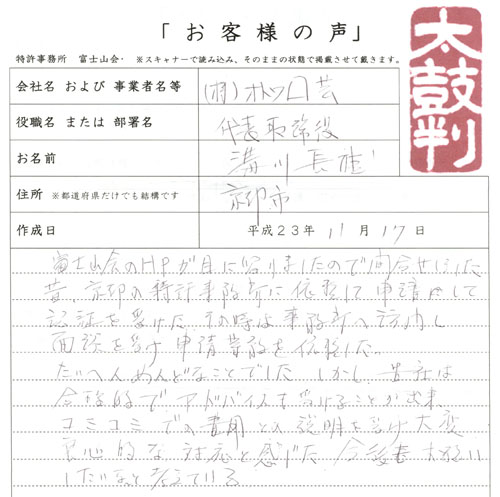 「お客様の声」
特許事務所 富士山会・ ※スキャナーで読み込み、そのままの状態で掲載させて戴きます。
太鼓判
会社名 および 事業者名等 (有)オトワ工芸
役職名 または 部署名 代表取締役
お名前 溝川長雄
住所 ※都道府県だけでも結構です 京都市
作成日 平成23年 11月 17日
富士山会のHPが目に留りましたので問合せした
昔、京都の特許事務所に依頼して申請して
認証を受けた その時は事務所へ訪問し
面談を受け 申請業務を依頼した
たいへんめんどなことでした しかし 貴社は
合理的で アドバイスも受けることが出来
コミコミでの費用との説明を受け 大変
良心的な対応と感じた 今後もお願い
したいと考えている